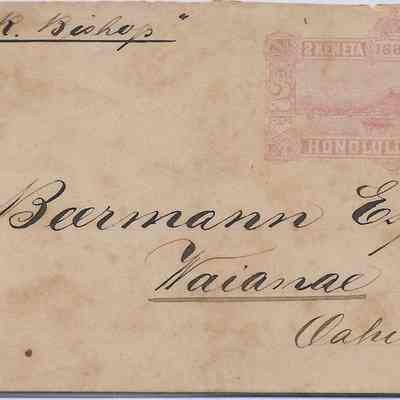 R. Bishop"
KENETA 188
HONOLULU
Beermann Es
Waianae
Oahu